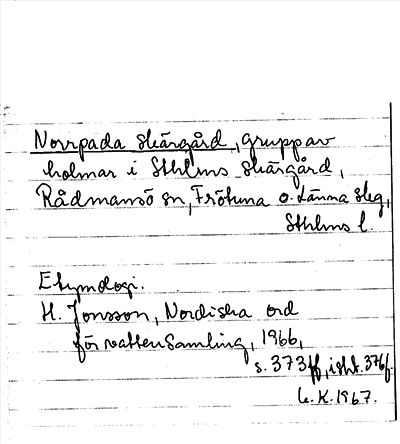 Norrpada skärgård, grupp av
holmar i Sthlms skärgård,
Rådmansö sn, Frötuna o. Länna slg,
Sthlms l.
Etymologi.
H. Jonsson, Nordiska ord
för vattensamling, 1966,
s. 373 ff, isht. 376 f.
K. 1967.